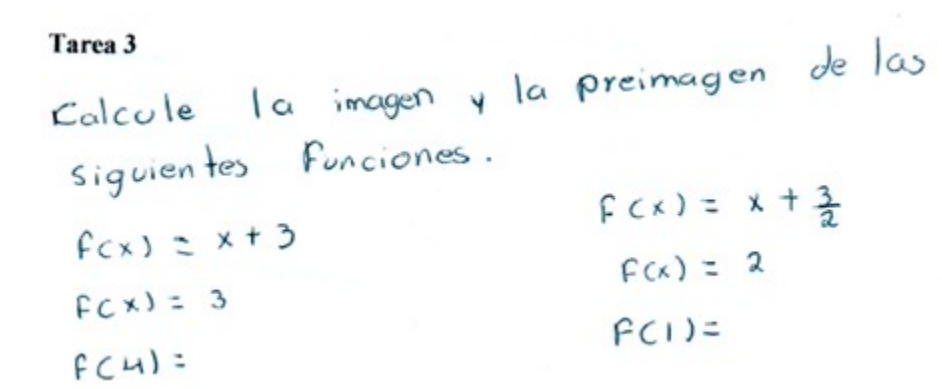 Tarea 3
Calcule la imagen y la preimagen de las
siguientes funciones.
f(x) = x + 3
f(x) = 3
f(4) =
f(x) = x + 3/2
f(x) = 2
f(1) =